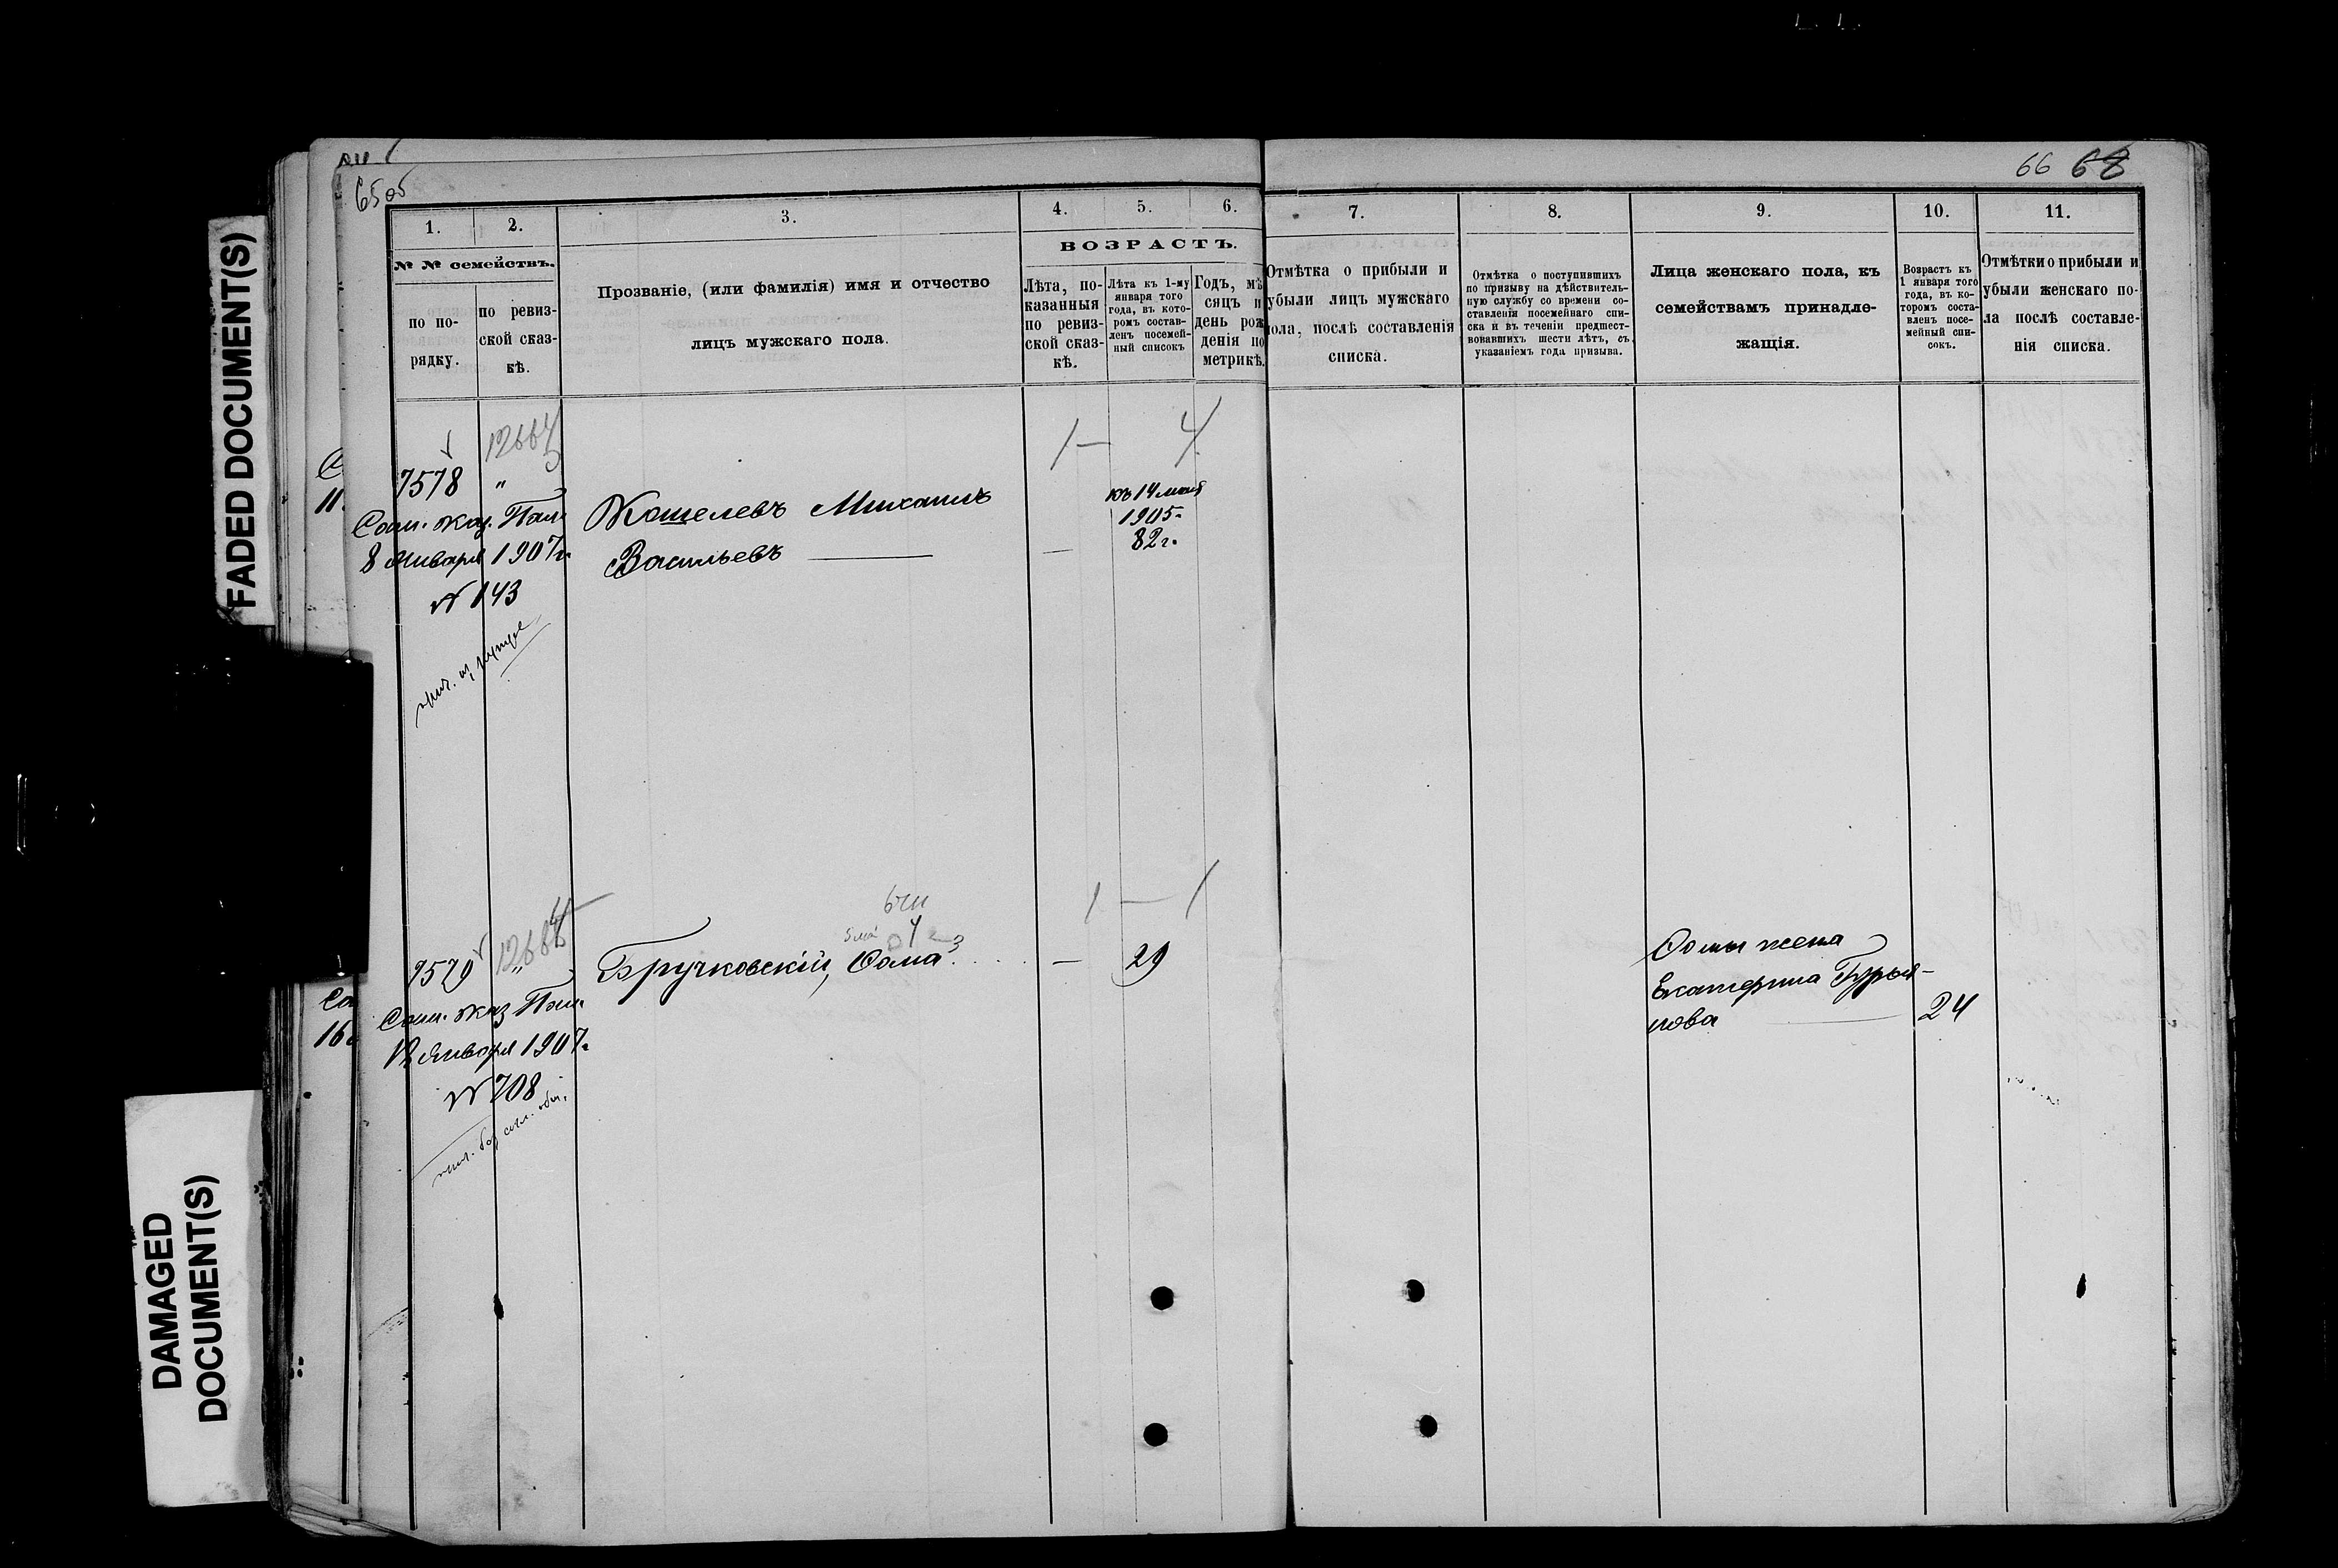 FADED DOCUMENT(S)
DAMAGED
DOCUMENT(S)
65об
66 68
1.
2.
3.
4.
5.
6.
7.
8.
9.
10.
11.
№ № семействъ.
по по-
рядку.
по ревиз-
ской сказ-
кѣ.
Прозваніе, (или фамилія) имя и отчество
лицъ мужскаго пола.
ВОЗРАСТЪ.
Лѣта, по-
казанныя
по ревиз-
ской сказ-
кѣ.
Лѣта къ 1-му
января того
года, въ кото-
ромъ состав-
ленъ посемей-
ный списокъ
Годъ, мѣ
сяцъ и
день рож
денія по
метрикѣ.
Отмѣтка о прибыли и
убыли лицъ мужскаго
пола, послѣ составленія
списка.
Отмѣтка о поступившихъ
по призыву на дѣйствитель-
ную службу со времени со-
ставленія посемейнаго спи-
ска и въ теченіи предшест-
вовавшихъ шести лѣтъ, съ
указаніемъ года призыва.
Лица женскаго пола, къ
семействамъ принадле-
жащія.
Возрастъ къ
1 января того
года, въ ко-
торомъ соста-
вленъ посе-
мейный спи-
сокъ.
Отмѣтки о прибыли и
убыли женскаго по-
ла послѣ составле-
нія списка.
7578 "
Каз. Пал.
8 Января 1907 г.
№ 143
Кошелевъ Михаилъ
Васильевъ
—
къ 14 мая
1905 г.
82 г.
7579 "
Каз. Пал.
Января 1907 г.
№ 708
Бручковскій, Ѳома
—
29
Ѳомы жена
Екатерина Гурья-
нова
24